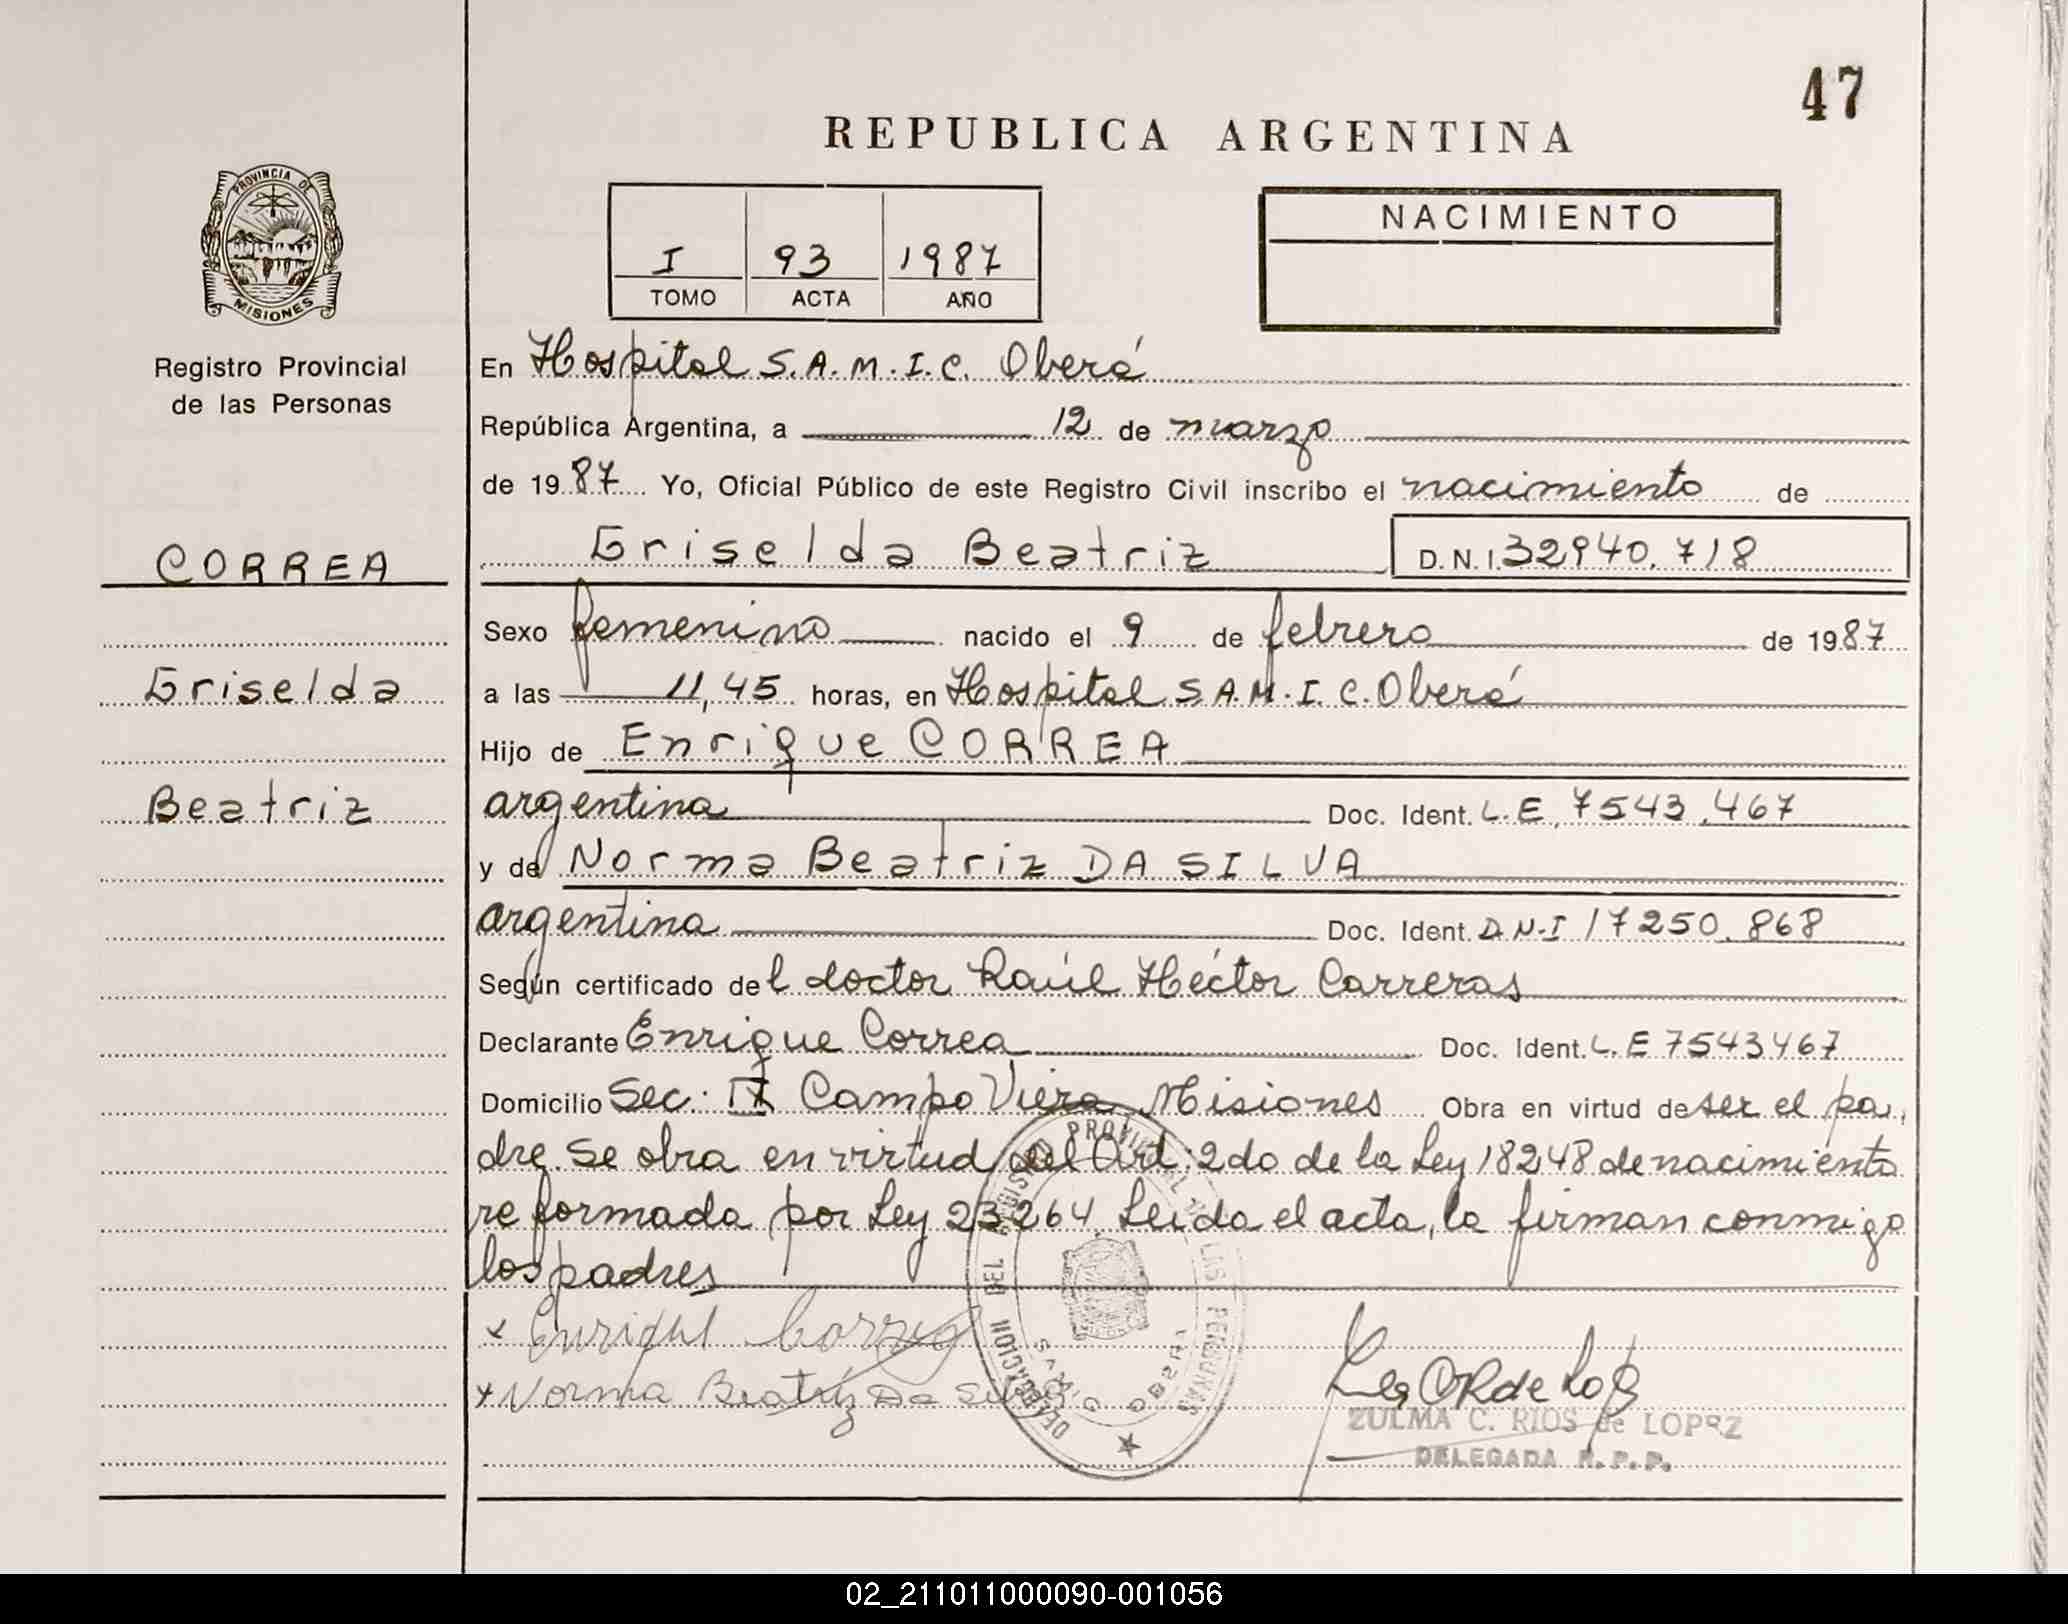 47
REPUBLICA ARGENTINA
PROVINCIA DE
MISIONES
Registro Provincial
de las Personas
I 93 1987
TOMO ACTA AÑO
NACIMIENTO
En Hospital S.A.M.I.C. Oberá
República Argentina, a 12 de marzo
de 1987 Yo, Oficial Público de este Registro Civil inscribo el nacimiento de
CORREA
Griselda Beatriz D.N.I. 32940.718
Sexo femenino nacido el 9 de febrero de 1987
Griselda
a las 11,45 horas, en Hospital S.A.M.I.C. Oberá
Hijo de Enrique CORREA
Beatriz
argentina Doc. Ident. L.E. 7543.467
y de Norma Beatriz DA SILVA
argentina Doc. Ident. D.N.I 17250.868
Según certificado del doctor Raúl Héctor Carreras
Declarante Enrique Correa Doc. Ident. L.E 7543467
Domicilio Sec: IX Campo Viera Misiones Obra en virtud de ser el pa,
dre. Se obra en virtud del Art. 2do de la Ley 18248 de nacimiento
reformada por Ley 23264 Leida el acta, la firman conmigo
los padres
x Enrique Correa
x Norma Beatriz Da Silva
DELEGACION DEL REGISTRO PROVINCIAL DE LAS PERSONAS
OBERA
ZULMA C. RIOS de LOPEZ
DELEGADA R.P.P.
02_211011000090-001056